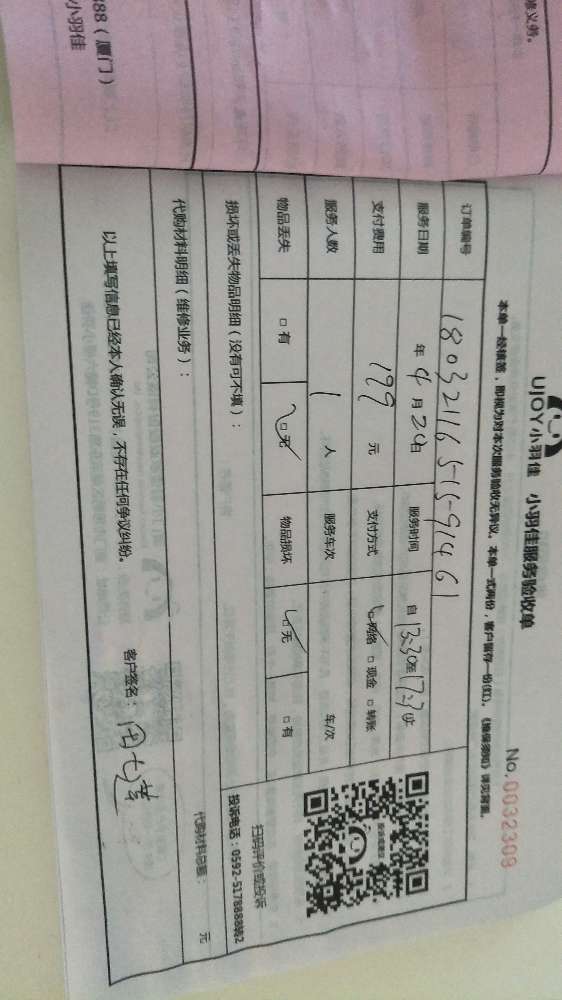 修义务。
888（厦门）
小羽佳
UJOY小羽佳 小羽佳服务验收单
No. 0032309
本单一经填签，即视为对本次服务验收无异议。本单一式两份，客户留存一份(红)。《维保须知》详见背面。
订单编号
服务日期 年 4 月 20日 服务时间 自 13:30至17:30止
支付费用 199 元 支付方式 □网络 □现金 □转账
服务人数 1 人 服务车次 车/次
物品丢失 □有 □无 物品损坏 □无 □有
损坏或丢失物品明细（没有可不填）：
扫码评价或投诉
投诉电话：0592-5178888转2
代购材料明细（维修业务）：
代购材料总额： 元
以上填写信息已经本人确认无误，不存在任何争议纠纷。
客户签名：